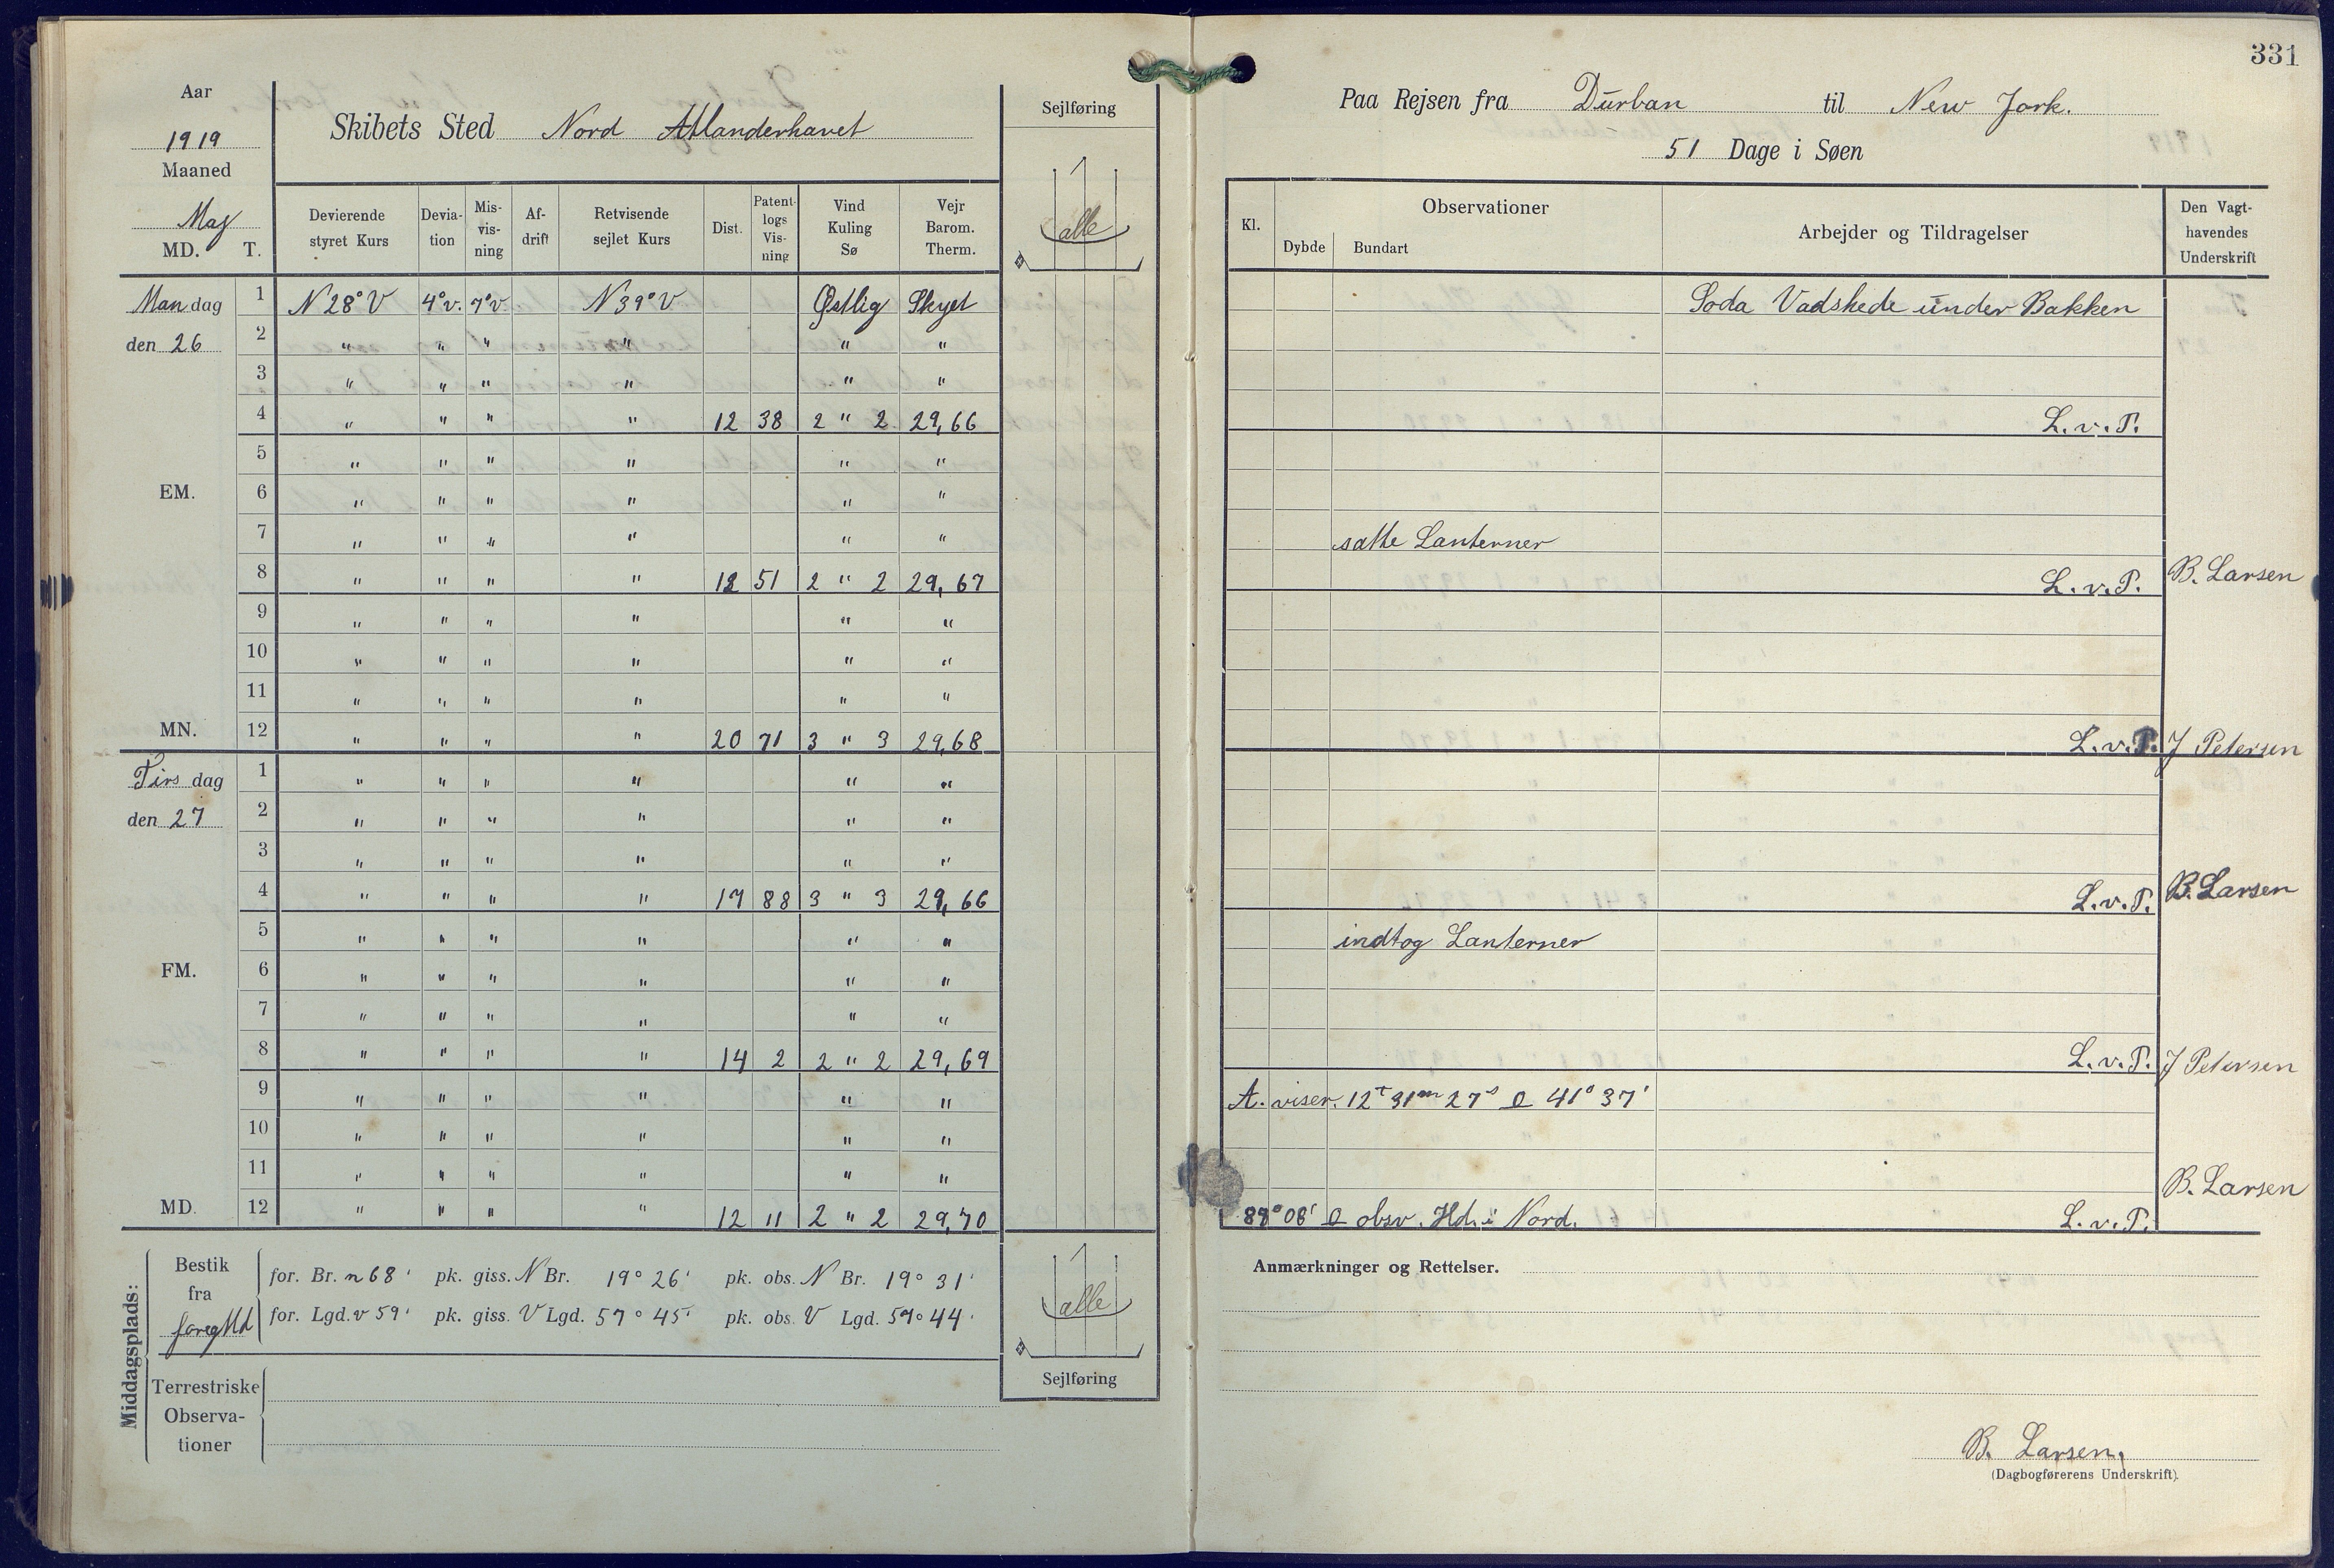 331
Aar
1919
Maaned
Maj
MD. T.
Skibets Sted Nord Atlanderhavet
Sejlføring
alle
Devierende styret Kurs
Devia-tion
Mis-vis-ning
Af-drift
Retvisende sejlet Kurs
Dist.
Patent-logs Vis-ning
Vind Kuling Sø
Vejr Barom. Therm.
Mandag 1 N 28° V 4° v. 7° v. N 39° V Østlig Skyet
den 26 2 " " " " " "
3 " " " " " "
4 " " " " 12 38 2 " 2 29,66
5 " " " " " "
EM. 6 " " " " " "
7 " " " " " "
8 " " " " 12 51 2 " 2 29,67
9 " " " " " "
10 " " " " " "
11 " " " " " "
MN. 12 " " " " 20 71 3 " 3 29,68
Tirsdag 1 " " " " " "
den 27 2 " " " " " "
3 " " " " " "
4 " " " " 17 88 3 " 3 29,66
5 " " " " " "
FM. 6 " " " " " "
7 " " " " " "
8 " " " " 14 2 2 " 2 29,69
9 " " " " " "
10 " " " " " "
11 " " " " " "
MD. 12 " " " " 12 11 2 " 2 29,70
Middagsplads:
Bestik fra foreg Md
for. Br. n 68' pk. giss. N Br. 19° 26' pk. obs. N Br. 19° 31'
for. Lgd. v 59' pk. giss. V Lgd. 57° 45' pk. obs. V Lgd. 57° 44'
Terrestriske
Observa-
tioner
alle
Sejlføring
Paa Rejsen fra Durban til New Jork.
51 Dage i Søen
Kl.
Observationer
Dybde Bundart
Arbejder og Tildragelser
Den Vagt-
havendes
Underskrift
Soda Vadskede under Bakken
L. v. P.
satte Lanterner
L. v. P. B. Larsen
L. v. P. J Petersen
L. v. P. B. Larsen
indtog Lanterner
L. v. P. J Petersen
A. viser. 12t 31m 27s 41° 37'
B. Larsen
89° 06' obsv. Hd. i Nord. L. v. P.
Anmærkninger og Rettelser.
B. Larsen,
(Dagbogførerens Underskrift).